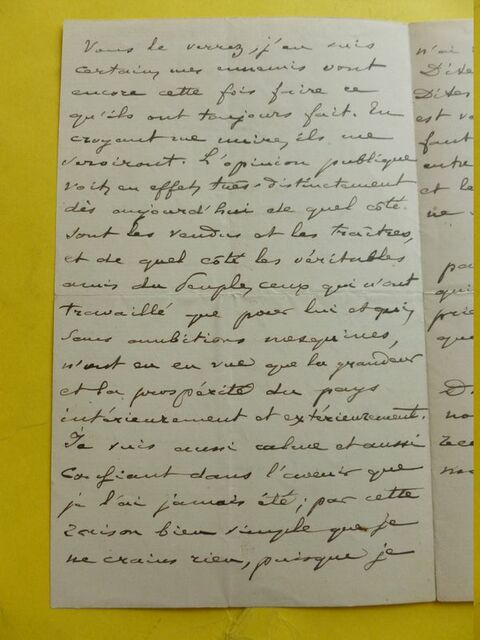 Vous le verrez, j'en suis
certain, mes ennemis vont
encore cette fois faire ce
qu'ils ont toujours fait. En
croyant me nuire, ils me
serviront. L'opinion publique
voit, en effet, très distinctement
dès aujourd'hui de quel côté
sont les vendus et les traîtres,
et de quel côté les véritables
amis du Peuple, ceux qui n'ont
travaillé que pour lui et qui,
sans ambitions mesquines,
n'ont eu en vue que la grandeur
et la prospérité du pays
intérieurement et extérieurement.
Je suis aussi calme et aussi
confiant dans l'avenir que
je l'ai jamais été; par cette
raison bien simple que je
ne crains rien, puisque je
n'ai
Dites
Dites
est
faut
entre
et le
ne
pa
qui
prie
que
D
no
rec